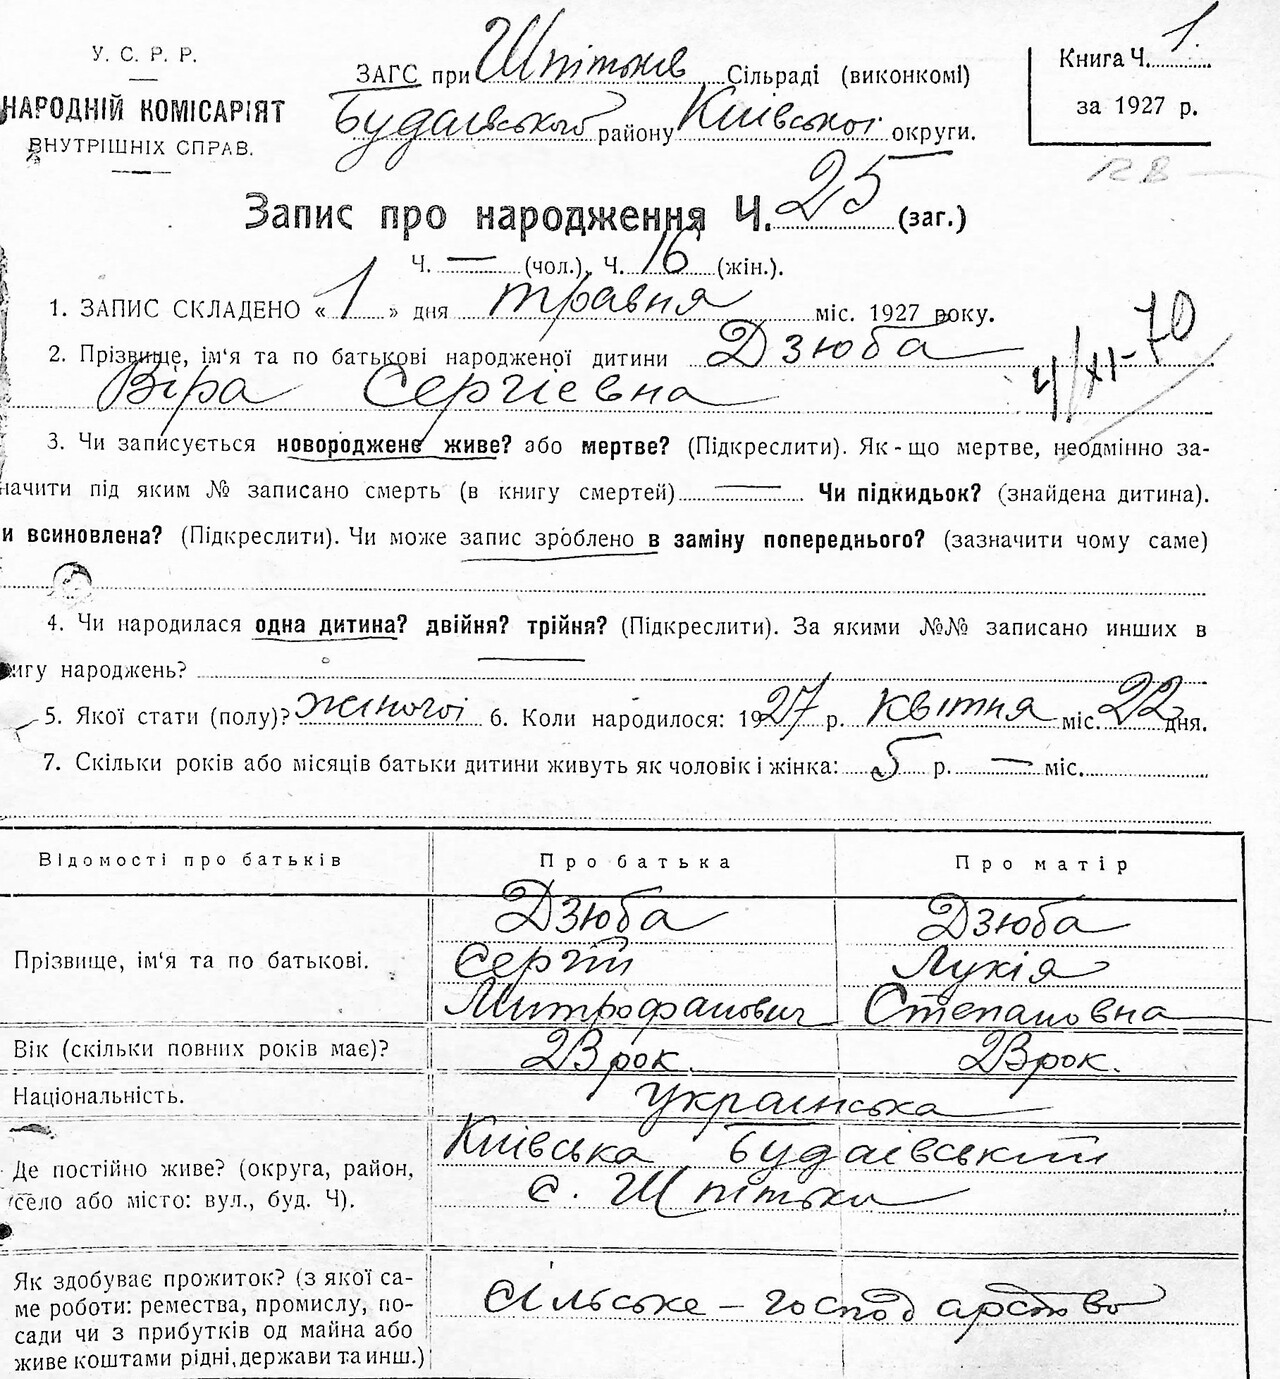 У. С. Р. Р.
НАРОДНІЙ КОМІСАРІЯТ
ВНУТРІШНІХ СПРАВ.
ЗАГС при Шпітьків Сільраді (виконкомі)
Будаївського району Київської округи.
Книга Ч. 1.
за 1927 р.
Запис про народження Ч. 25 (заг.)
Ч. — (чол.), Ч. 16 (жін.).
1. ЗАПИС СКЛАДЕНО « 1 » дня травня міс. 1927 року.
2. Прізвище, ім'я та по батькові народженої дитини Дзюба
Віра Сергіевна
4/XI-70
3. Чи записується новороджене живе? або мертве? (Підкреслити). Як-що мертве, неодмінно за-
начити під яким № записано смерть (в книгу смертей) — Чи підкидьок? (знайдена дитина).
и всиновлена? (Підкреслити). Чи може запис зроблено в заміну попереднього? (зазначити чому саме)
4. Чи народилася одна дитина? двійня? трійня? (Підкреслити). За якими №№ записано инших в
нигу народжень? —
5. Якої стати (полу)? жіночої 6. Коли народилося: 1927 р. квітня міс. 22 дня.
7. Скільки років або місяців батьки дитини живуть як чоловік і жінка: 5 р. — міс.
Відомості про батьків Про батька Про матір
Прізвище, ім'я та по батькові.
Дзюба Дзюба
Сергій Лукія
Митрофанович Степановна
Вік (скільки повних років має)? 23 рок. 23 рок.
Національність. Українська
Де постійно живе? (округа, район,
село або місто: вул., буд. Ч).
Київська Будаївський
с. Шпітьки
Як здобуває прожиток? (з якої са-
ме роботи: ремества, промислу, по-
сади чи з прибутків од майна або
живе коштами рідні, держави та инш.)
Сільське – господарство